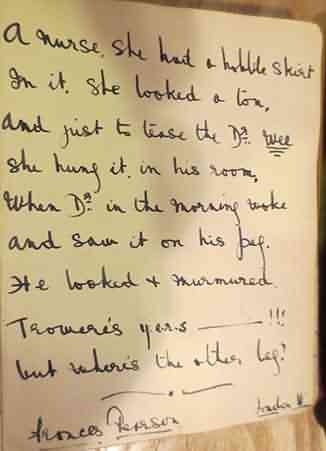 A nurse, she had a hobble skirt
In it, she looked a ton,
And just to tease the Dr. Wee
She hung it in his room,
When Dr. in the morning woke
and saw it on his peg.
He looked & murmured.
Trowere's yers ——— !!!
but where's the other leg?
Frances Pearson
London H